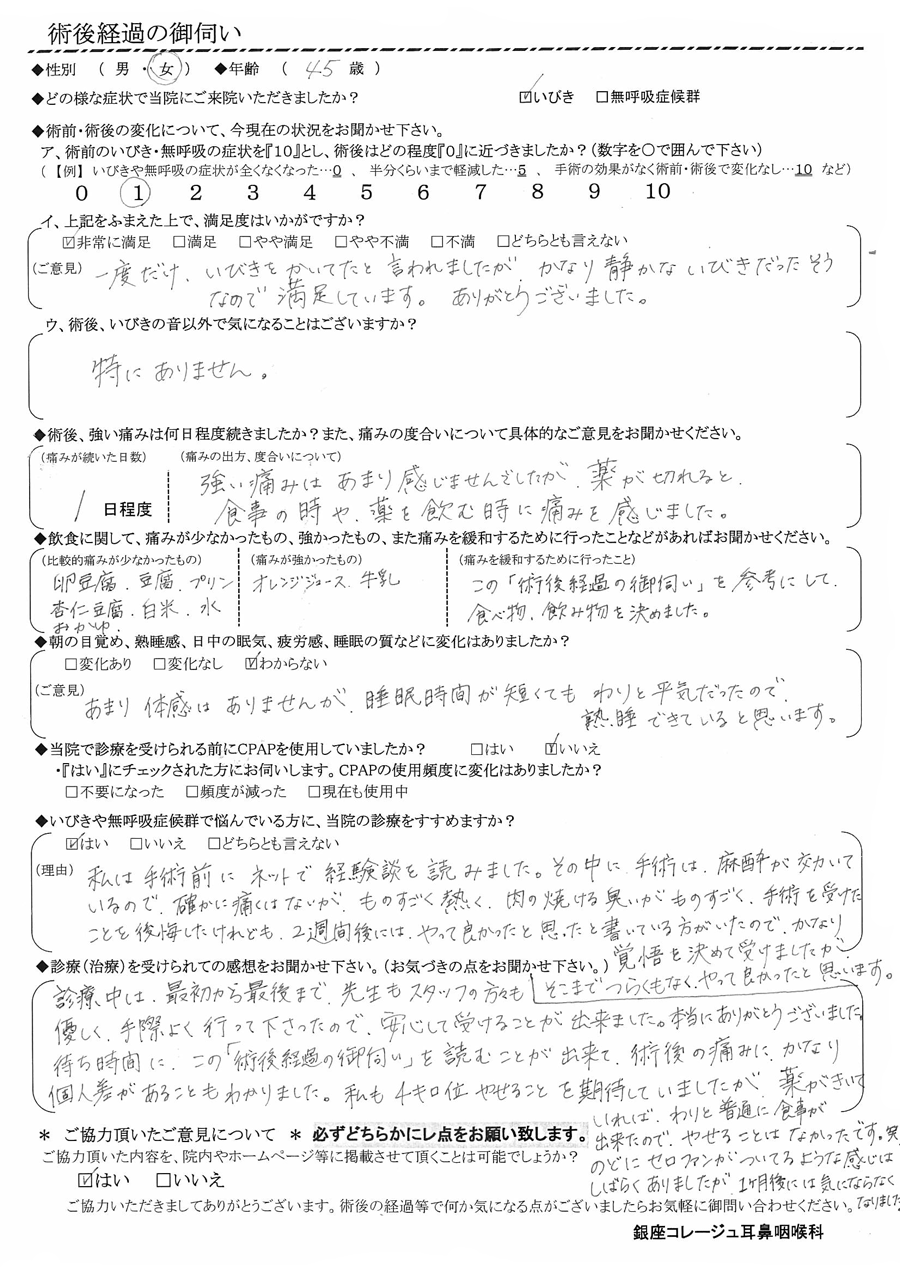 術後経過の御伺い
◆性別 （ 男 ・ 女 ） ◆年齢 （ 45 歳 ）
◆どの様な症状で当院にご来院いただきましたか？ ☑いびき □無呼吸症候群
◆術前・術後の変化について、今現在の状況をお聞かせ下さい。
ア、術前のいびき・無呼吸の症状を『10』とし、術後はどの程度『0』に近づきましたか？（数字を○で囲んで下さい）
（ 【例】 いびきや無呼吸の症状が全くなくなった…0 、 半分くらいまで軽減した…5 、 手術の効果がなく術前・術後で変化なし…10 など）
0 1 2 3 4 5 6 7 8 9 10
イ、上記をふまえた上で、満足度はいかがですか？
☑非常に満足 □満足 □やや満足 □やや不満 □不満 □どちらとも言えない
（ご意見） 一度だけ、いびきをかいてたと言われましたが、かなり静かないびきだったそう
なので満足しています。ありがとうございました。
ウ、術後、いびきの音以外で気になることはございますか？
特にありません。
◆術後、強い痛みは何日程度続きましたか？また、痛みの度合いについて具体的なご意見をお聞かせください。
（痛みが続いた日数） （痛みの出方、度合いについて）
1 日程度
強い痛みはあまり感じませんでしたが、薬が切れると、
食事の時や、薬を飲む時に痛みを感じました。
◆飲食に関して、痛みが少なかったもの、強かったもの、また痛みを緩和するために行ったことなどがあればお聞かせください。
（比較的痛みが少なかったもの） （痛みが強かったもの） （痛みを緩和するために行ったこと）
卵豆腐、豆腐、プリン
杏仁豆腐、白米、水
おかゆ、
オレンジジュース、牛乳
この「術後経過の御伺い」を参考にして、
食べ物、飲み物を決めました。
◆朝の目覚め、熟睡感、日中の眠気、疲労感、睡眠の質などに変化はありましたか？
□変化あり □変化なし ☑わからない
（ご意見） あまり体感はありませんが、睡眠時間が短くてもわりと平気だったので、
熟睡できていると思います。
◆当院で診療を受けられる前にCPAPを使用していましたか？ □はい ☑いいえ
・『はい』にチェックされた方にお伺いします。CPAPの使用頻度に変化はありましたか？
□不要になった □頻度が減った □現在も使用中
◆いびきや無呼吸症候群で悩んでいる方に、当院の診療をすすめますか？
☑はい □いいえ □どちらとも言えない
（理由） 私は手術前にネットで経験談を読みました。その中に手術は、麻酔が効いて
いるので、確かに痛くはないが、ものすごく熱く、肉の焼ける臭いがものすごく、手術を受けた
ことを後悔したけれども、2週間後には、やって良かったと思ったと書いている方がいたので、かなり
覚悟を決めて受けましたが、
そこまでつらくもなく、やって良かったと思います。
◆診療（治療）を受けられての感想をお聞かせ下さい。（お気づきの点をお聞かせ下さい。）
診療中は、最初から最後まで、先生もスタッフの方々も
優しく、手際よく行って下さったので、安心して受けることが出来ました。本当にありがとうございました。
待ち時間に、この「術後経過の御伺い」を読むことが出来て、術後の痛みに、かなり
個人差があることもわかりました。私も4キロ位やせることを期待していましたが、薬がきいて
いれば、わりと普通に食事が
出来たので、やせることはなかったです。笑
のどにセロファンがついてるような感じは
しばらくありましたが、1ヶ月後には気にならなく
なりました。
＊ ご協力頂いたご意見について ＊ 必ずどちらかにレ点をお願い致します。
ご協力頂いた内容を、院内やホームページ等に掲載させて頂くことは可能でしょうか？
☑はい □いいえ
ご協力いただきましてありがとうございます。術後の経過等で何か気になる点がございましたらお気軽に御問い合わせください。
銀座コレージュ耳鼻咽喉科